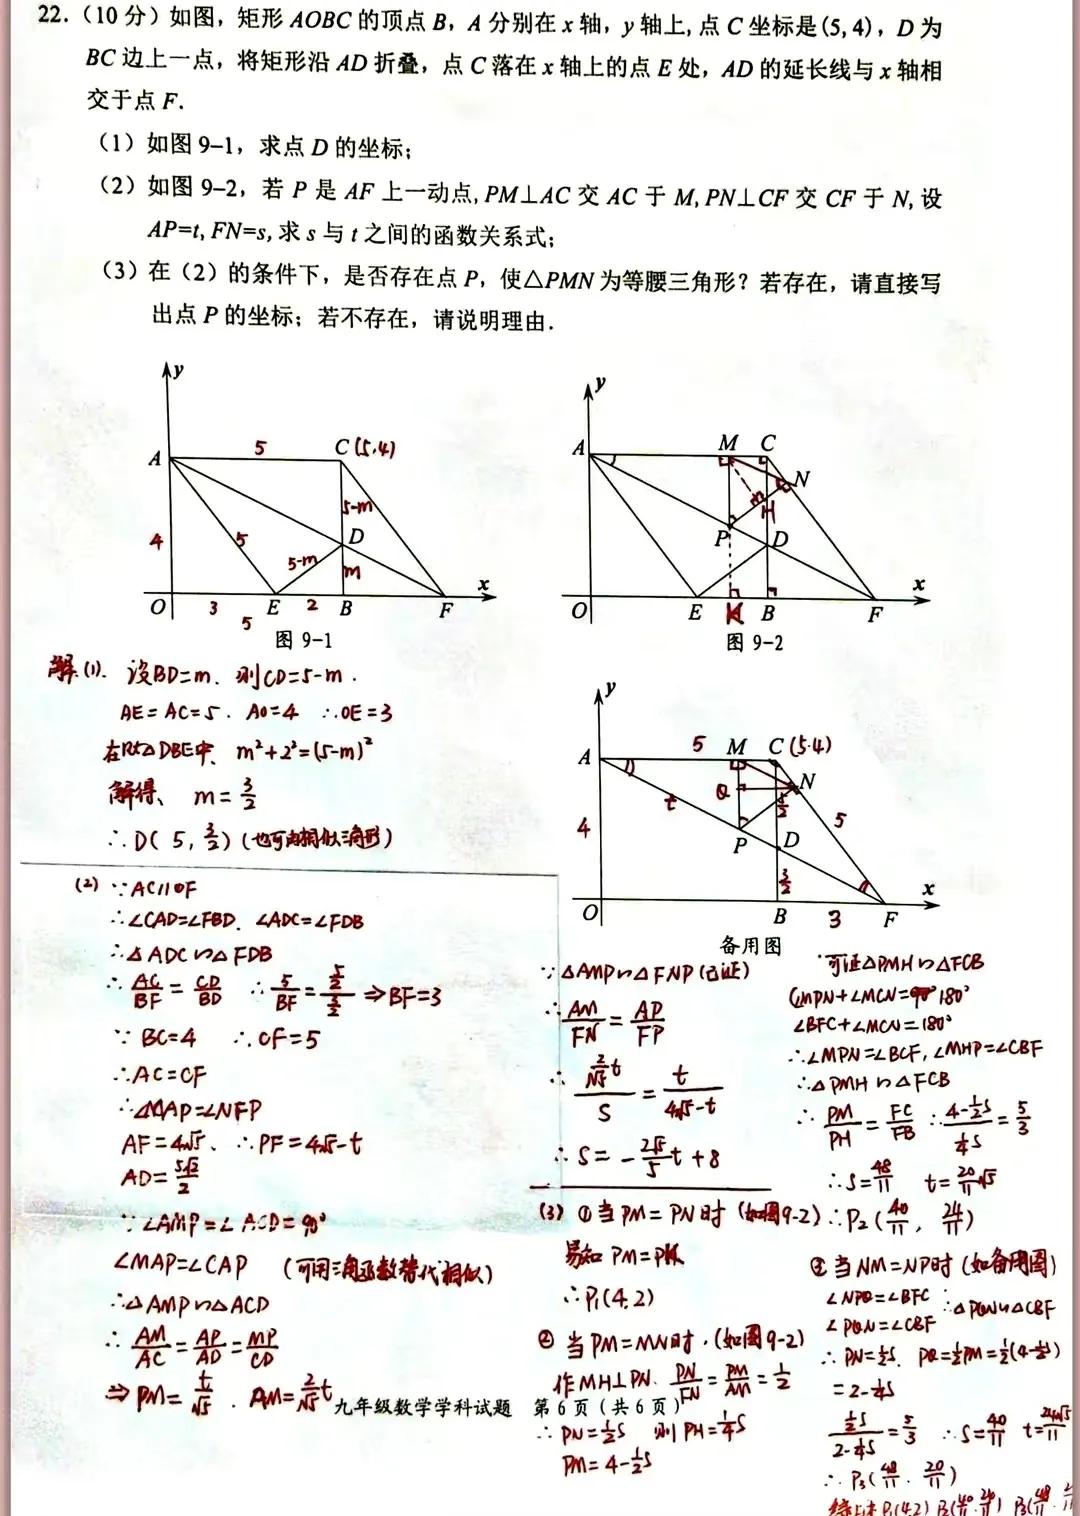 22.(10 分)如图，矩形 AOBC 的顶点 B，A 分别在 x 轴，y 轴上, 点 C 坐标是(5, 4)，D 为
BC 边上一点，将矩形沿 AD 折叠，点 C 落在 x 轴上的点 E 处，AD 的延长线与 x 轴相
交于点 F.
（1）如图 9–1，求点 D 的坐标;
（2）如图 9–2，若 P 是 AF 上一动点, PM⊥AC 交 AC 于 M, PN⊥CF 交 CF 于 N, 设
AP=t, FN=s, 求 s 与 t 之间的函数关系式;
（3）在（2）的条件下，是否存在点 P，使△PMN 为等腰三角形？若存在，请直接写
出点 P 的坐标；若不存在，请说明理由.
y
A 5 C (5.4)
5-m
4 5 D
5-m m
O 3 E 2 B F x
5
图 9–1
y
A M C
N
H
P D
O E K B F x
图 9–2
y
A 5 M C (5.4)
Q N
t 3/2
4 5
P D
3/2
O B 3 F x
备用图
解.(1). 设BD=m. 则CD=5-m.
AE=AC=5. AO=4 ∴OE=3
在Rt△DBE中, m²+2²=(5-m)²
解得、 m=3/2
∴D( 5, 3/2) (也可由相似三角形)
(2) ∵AC∥OF
∴∠CAD=∠FBD. ∠ADC=∠FDB
∴△ADC∽△FDB
∴AC/BF=CD/BD ∴5/BF=(5/2)/(3/2)⇒BF=3
∵ BC=4 ∴CF=5
∴AC=CF
∴∠MAP=∠NFP
AF=4√5、∴PF=4√5-t
AD=5√5/2
∵∠AMP=∠ACD=90°
∠MAP=∠CAP (可用三角函数替代相似)
∴△AMP∽△ACD
∴AM/AC=AP/AD=MP/CD
⇒PM=t/√5. AM=2/√5t
∵△AMP∽△FNP(已证)
∴AM/FN=AP/FP
∴(2/√5t)/S=t/(4√5-t)
∴S=-2√5/5t+8
(3) ①当PM=PN时 (如图9-2)
易知 PM=PK
∴P₁(4,2)
② 当PM=MN时.(如图9-2)
作MH⊥PN. PN/FN=PM/AM=1/2
∴PN=1/2S 则PH=1/4S
PM=4-1/2S
可证△PMH∽△FCB
∠MPN+∠MCN=180°
∠BFC+∠MCN=180°
∴∠MPN=∠BCF, ∠MHP=∠CBF
∴△PMH∽△FCB
∴PM/PH=FC/FB ∴(4-1/2S)/(1/4S)=5/3
∴S=48/11 t=20/11√5
∴P₂(40/11, 24/11)
③ 当NM=NP时(如备用图)
∠NPQ=∠BFC
∠PQN=∠CBF ∴△PQN∽△CBF
∴PN=1/2S. PQ=1/2PM=1/2(4-1/2S)
=2-1/4S
(1/2S)/(2-1/4S)=5/3 ∴S=40/11 t=24√5/11
∴P₃(48/11, 20/11)
九年级数学学科试题 第 6 页（共 6 页）